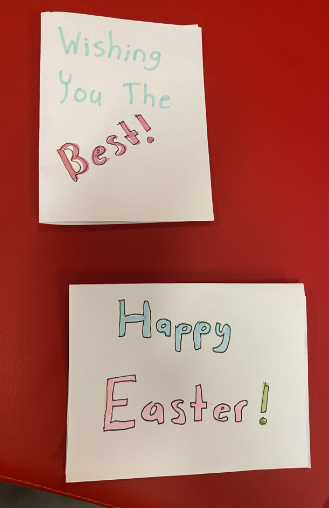 Wishing
You The
Best!
Happy
Easter!